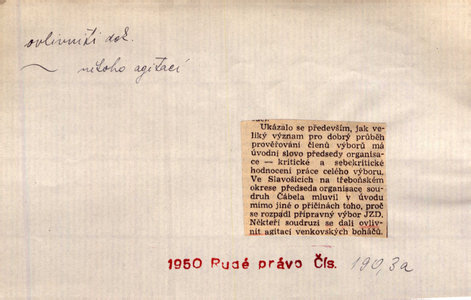 ovlivniti dok.
~ někoho agitací
Ukázalo se především, jak ve-
liký význam pro dobrý průběh
prověřování členů výborů má
úvodní slovo předsedy organisa-
ce — kritické a sebekritické
hodnocení práce celého výboru.
Ve Slavošicích na třeboňském
okrese předseda organisace sou-
druh Čábela mluvil v úvodu
mimo jiné o příčinách toho, proč
se rozpadl přípravný výbor JZD.
Někteří soudruzi se dali ovliv-
nit agitací venkovských boháčů.
1950 Rudé právo Čís. 190,3a